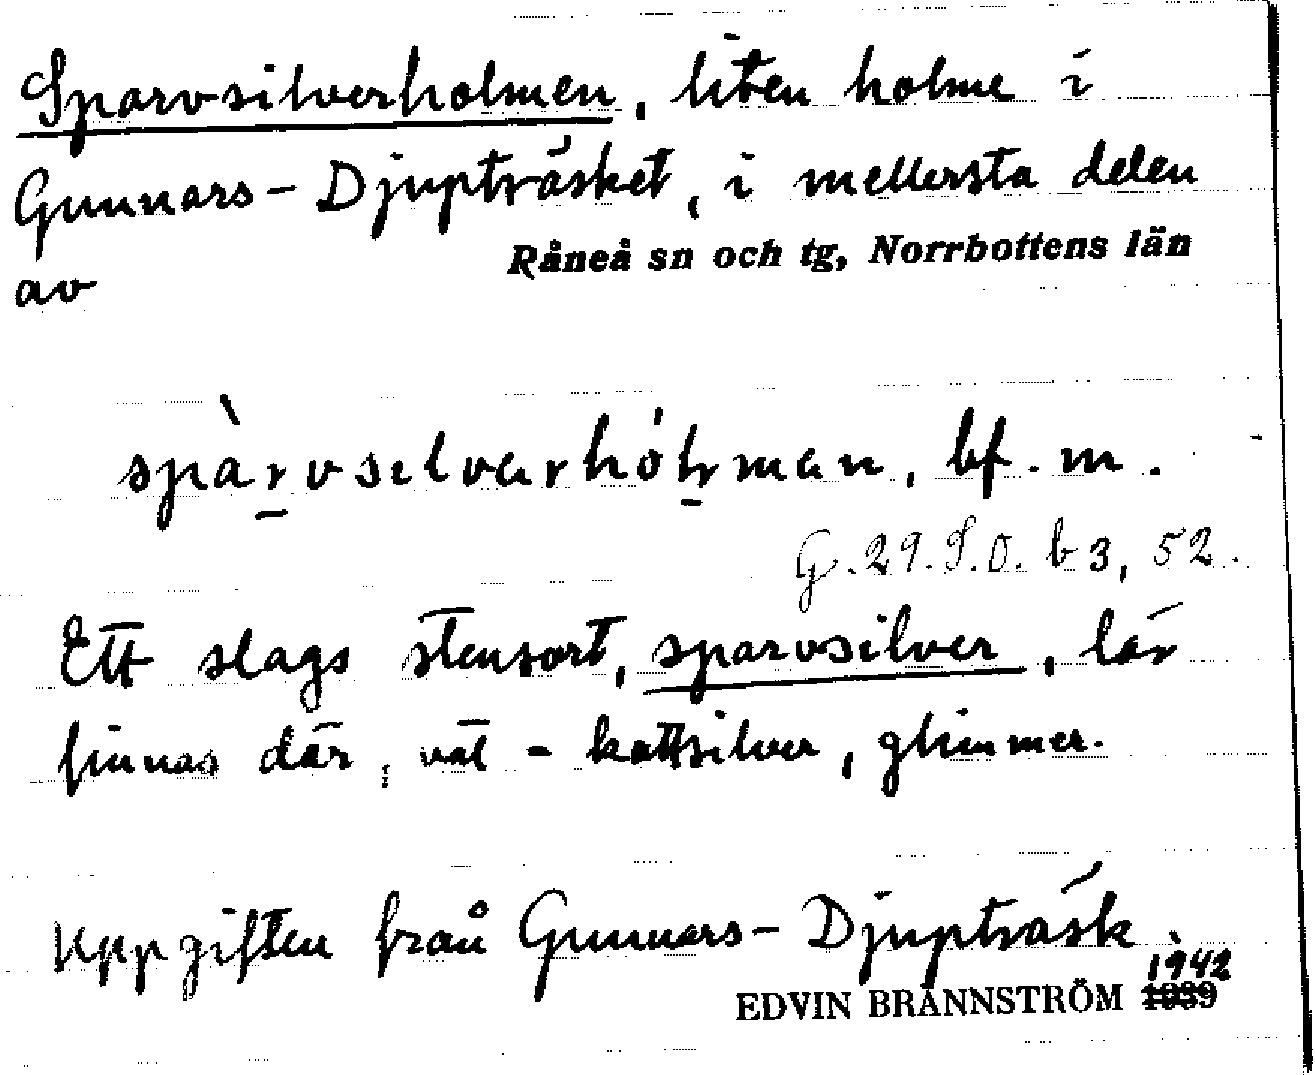 Sparvsilverholmen, liten holme i
Gunnars-Djupträsket, i mellersta delen
av Råneå sn och tg, Norrbottens län
spàrvsilvarhóļman, bf. m.
G. 29. S.O. b 3, 52.
Ett slags stensort, sparvsilver, lär
finnas där, väl - kattsilver, glimmer.
Uppgiften från Gunnars-Djupträsk.
EDVIN BRÄNNSTRÖM 1939 1942